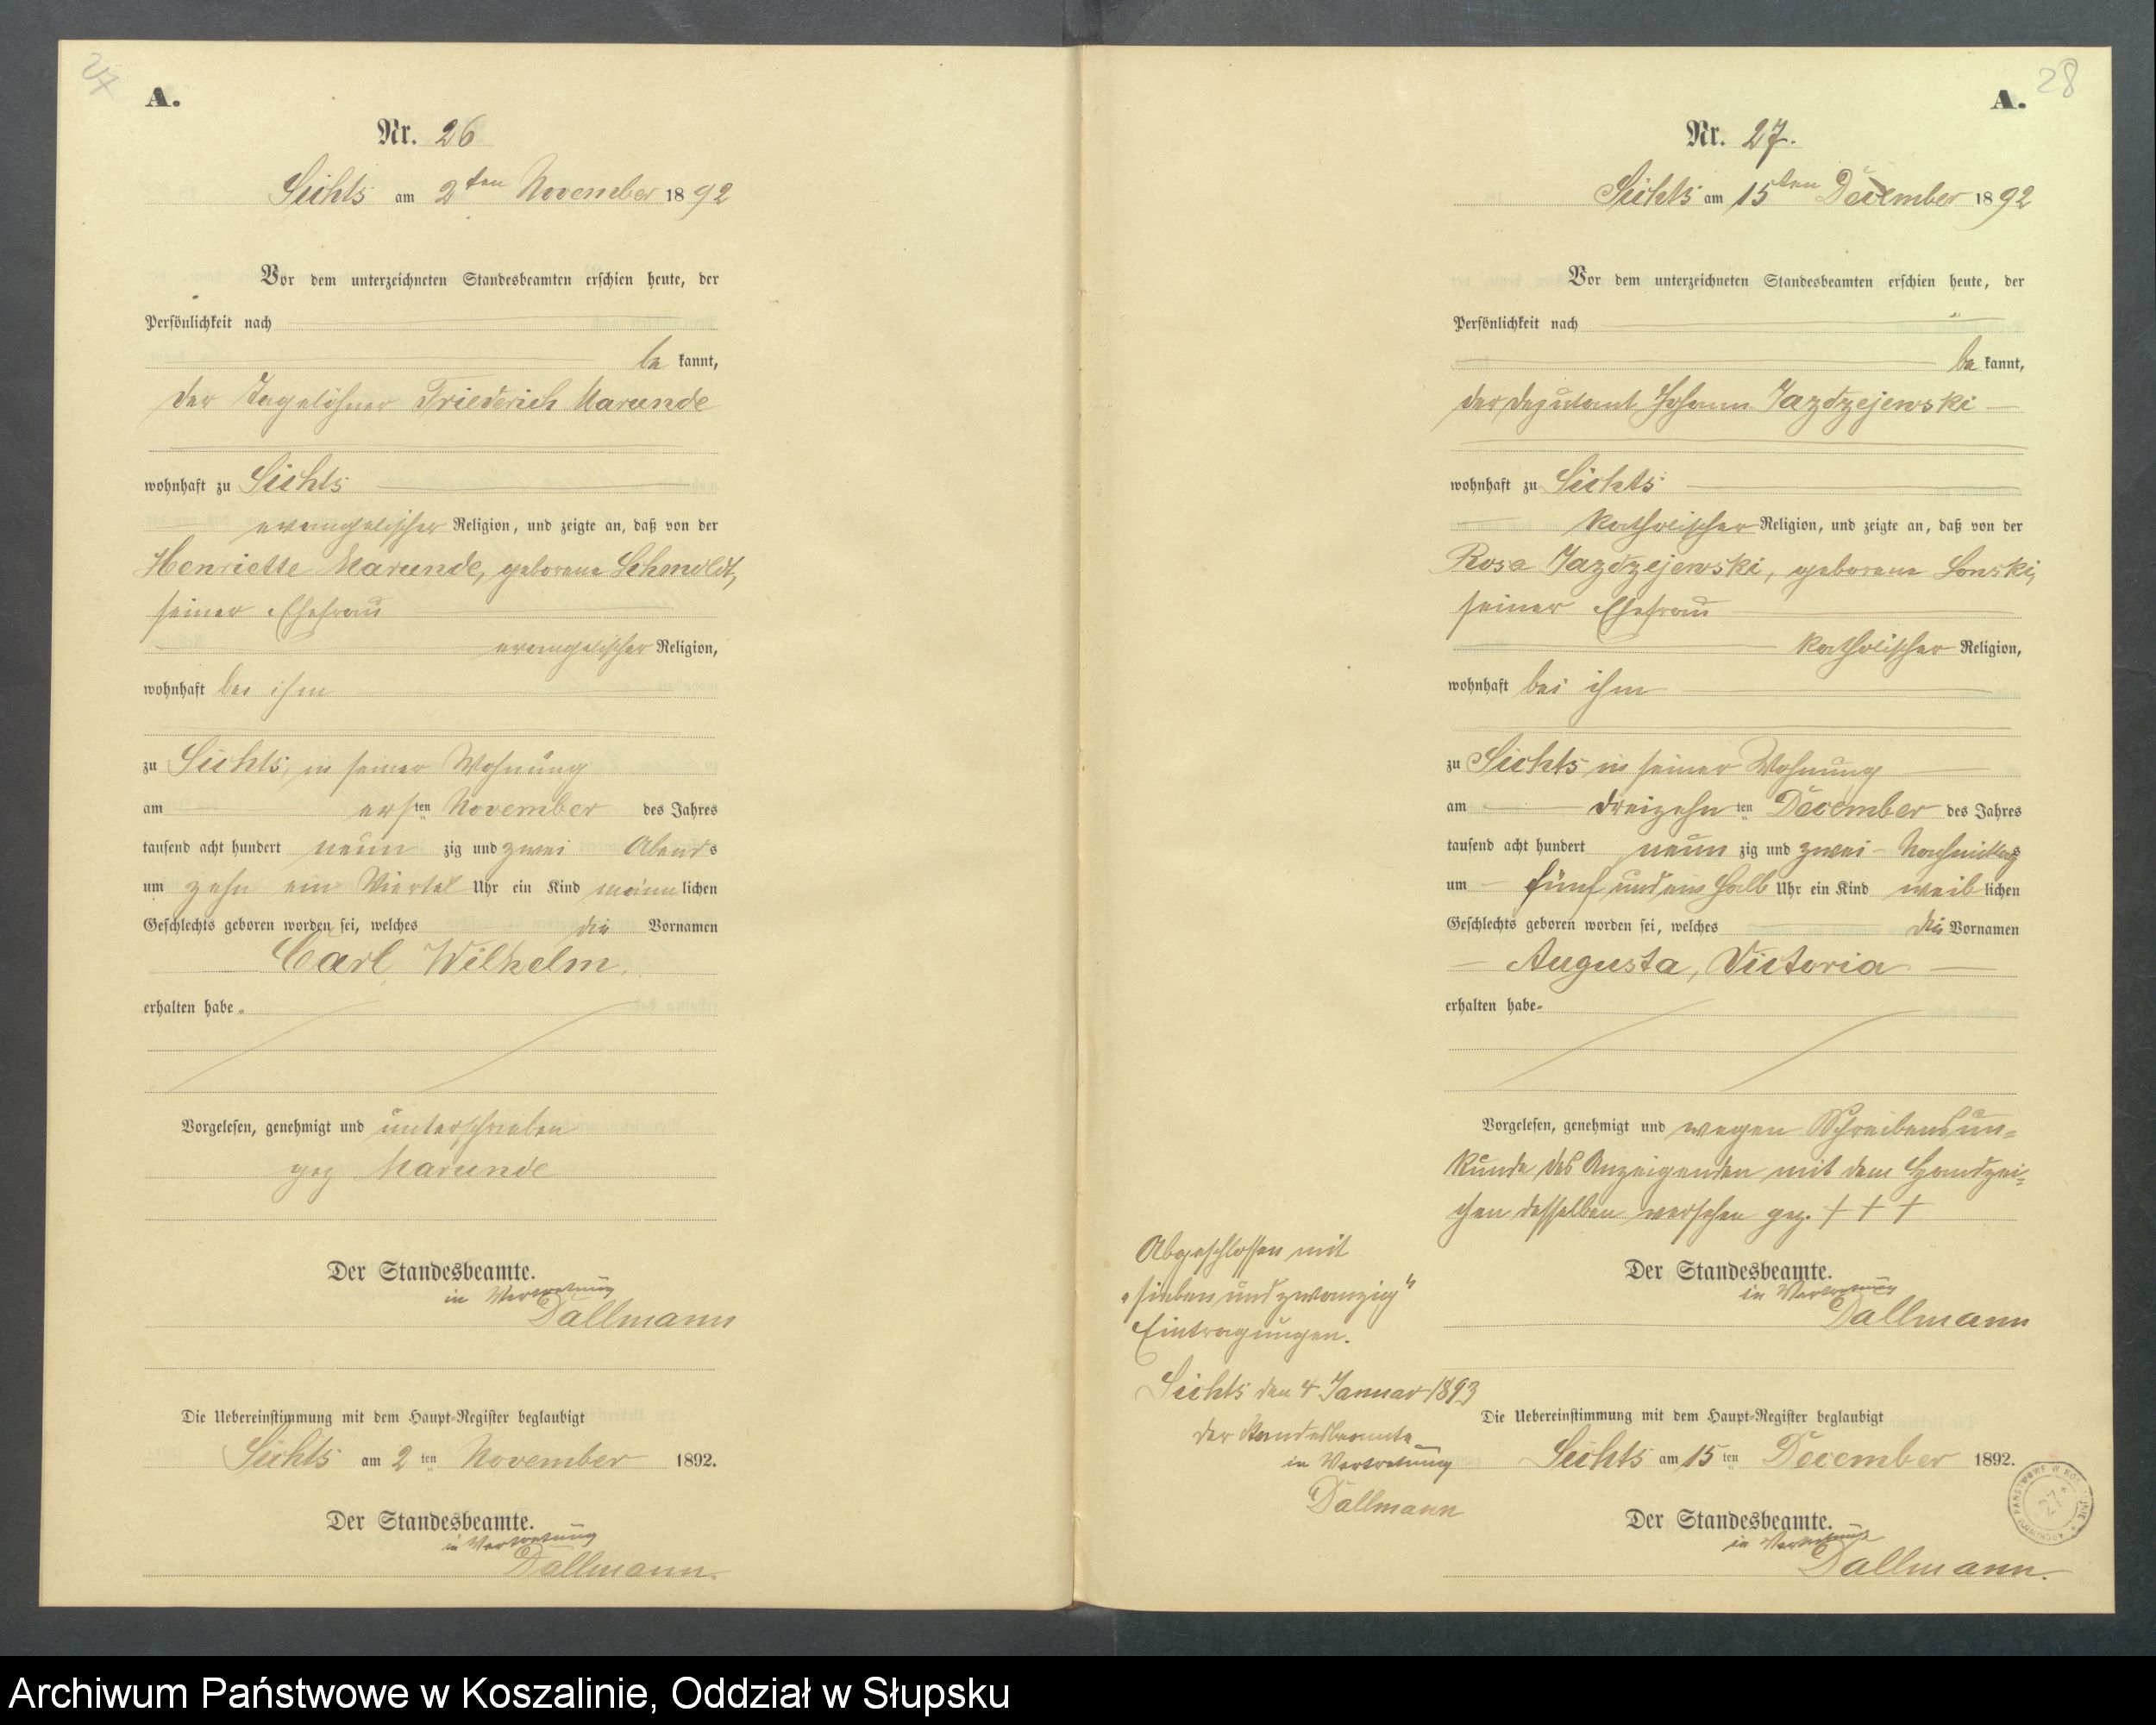 27
A.
Nr. 26
Sichts am 2ten November 1892
Vor dem unterzeichneten Standesbeamten erschien heute, der
Persönlichkeit nach
be kannt,
der Tagelöhner Friederich Marunde
wohnhaft zu Sichts
evangelischer Religion, und zeigte an, daß von der
Henriette Marunde, geborene Schmoldt,
seiner Ehefrau
evangelischer Religion,
wohnhaft bei ihm
zu Sichts, in seiner Wohnung
am ersten November des Jahres
tausend acht hundert neun zig und zwei Abends
um zehn ein Viertel Uhr ein Kind männlichen
Geschlechts geboren worden sei, welches die Vornamen
Carl Wilhelm
erhalten habe.
Vorgelesen, genehmigt und unterschrieben
gez Marunde
Der Standesbeamte.
in Vertretung
Dallmann
Die Uebereinstimmung mit dem Haupt-Register beglaubigt
Sichts am 2ten November 1892.
Der Standesbeamte.
in Vertretung
Dallmann.
28
A.
Nr. 27.
Sichts am 15ten December 1892
Vor dem unterzeichneten Standesbeamten erschien heute, der
Persönlichkeit nach
be kannt,
der Deputant Johann Jazdzejewski
wohnhaft zu Sichts
katholischer Religion, und zeigte an, daß von der
Rosa Jazdzejewski, geborene Lonski,
seiner Ehefrau
katholischer Religion,
wohnhaft bei ihm
zu Sichts in seiner Wohnung
am dreizehnten December des Jahres
tausend acht hundert neun zig und zwei Nachmittags
um fünf und ein halb Uhr ein Kind weiblichen
Geschlechts geboren worden sei, welches die Vornamen
Augusta, Victoria
erhalten habe.
Vorgelesen, genehmigt und wegen Schreibensun=
kunde des Anzeigenden mit dem Handzei=
chen desselben versehen gez. + + +
Der Standesbeamte.
in Vertretung
Dallmann
Abgeschlossen mit
„sieben und zwanzig“
Eintragungen.
Sichts den 4 Januar 1893
der Standesbeamte
in Vertretung
Dallmann
Die Uebereinstimmung mit dem Haupt-Register beglaubigt
Sichts am 15ten December 1892.
Der Standesbeamte.
in Vertretung
Dallmann.
27
Archiwum Państwowe w Koszalinie, Oddział w Słupsku